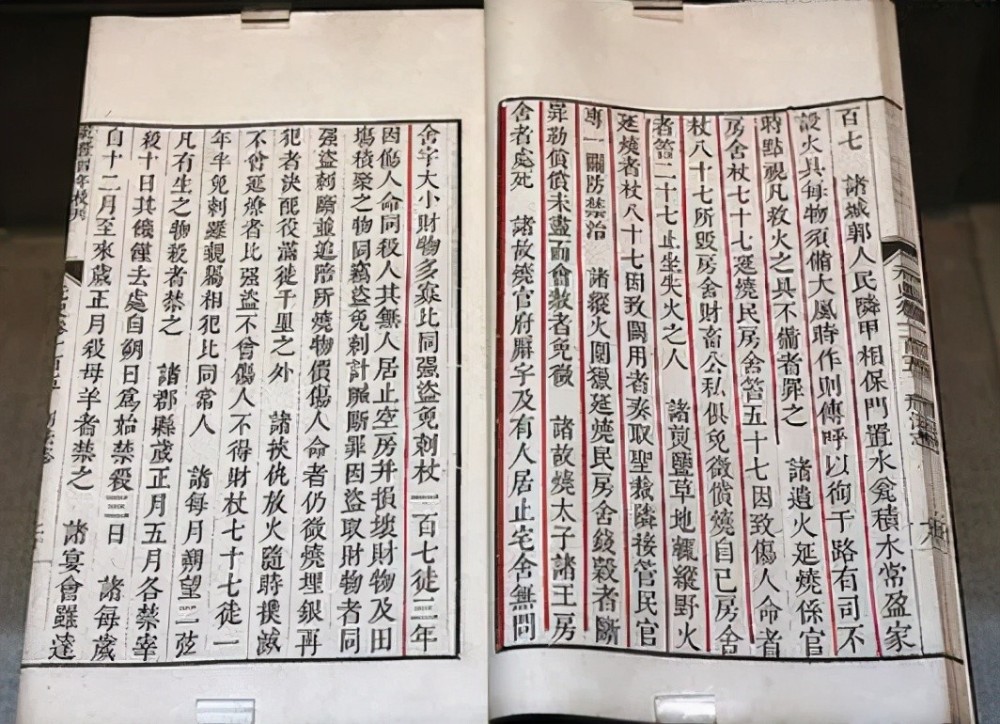 百七　諸城郭人民隣甲相保門置水瓮積水常盈家
設火具每物須備大風時作則傳呼以徇于路有司不
時點視凡救火之具不備者罪之　諸遺火延燒係官
房舍杖七十七延燒民房舍笞五十七因致傷人命者
杖八十七所毀房舍財畜公私俱免徵償燒自己房舍
者笞二十七止坐失火之人　諸煎鹽草地輒縱野火
延燒者杖八十七因致闕用者奏取聖裁隣接管民官
專一關防禁治　諸縱火圍獵延燒民房舍錢穀者斷
罪勒償償未盡而會赦者免徵　諸故燒太子諸王房
舍者處死　諸故燒官府廨宇及有人居止宅舍無問
舍宇大小財物多寡比同强盜免刺杖一百七徒三年
因傷人命同殺人其無人居止空房并損壞財物及田
場積聚之物同竊盜免刺計贓斷罪因盜取財物者同
强盜刺斷並追陪所燒物價傷人命者仍徵燒埋銀再
犯者決配役滿徙千里之外　諸挾仇放火隨時撲滅
不曾延燎者比强盜不曾傷人不得財杖七十七徒一
年半免刺雖親屬相犯比同常人　諸每月朔望二弦
凡有生之物殺者禁之　諸郡縣歲正月五月各禁宰
殺十日其饑饉去處自朔日爲始禁殺三日　諸每歲
自十二月至來歲正月殺母羊者禁之　諸宴會雖達